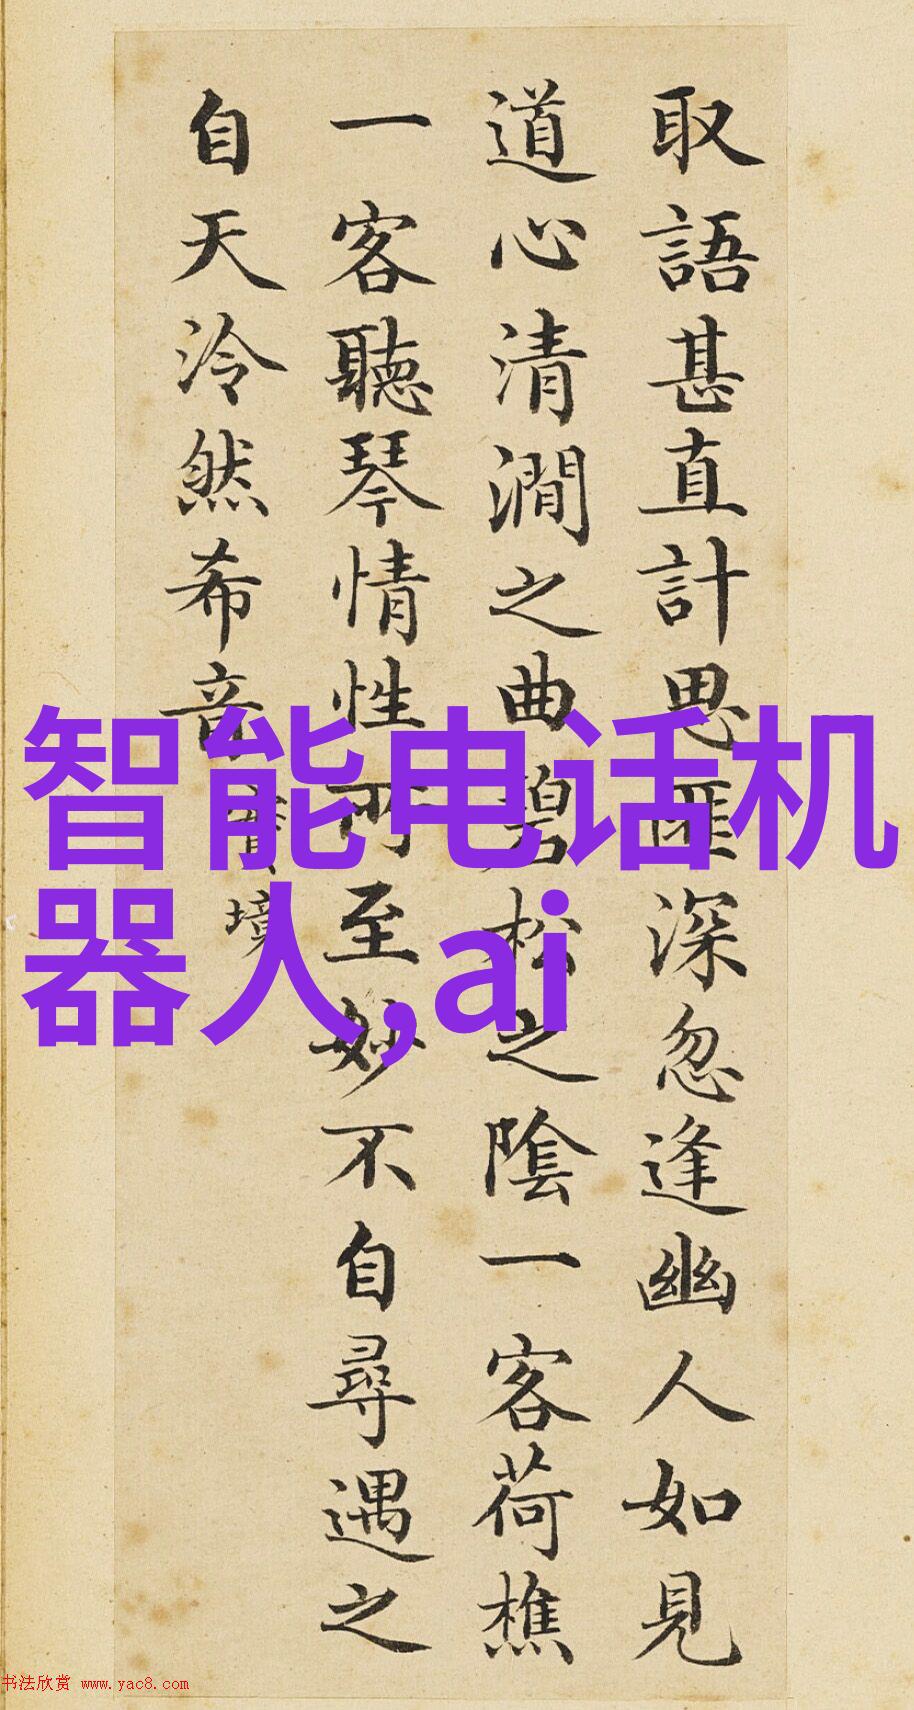 取語甚直計思匪深忽逢幽人如見
道心清澗之曲碧松之陰一客荷樵
一客聽琴情性所至妙不自尋遇之
自天泠然希音 實境
智能电话机
器人,ai
书法欣赏 www.yac8.com